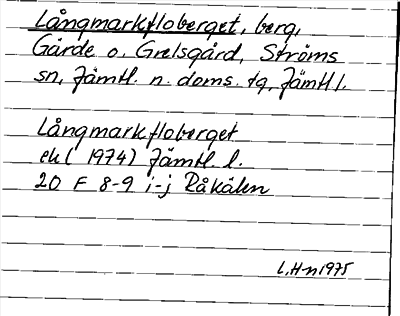 Långmarkfloberget, berg,
Gärde o. Grelsgård, Ströms
sn, Jämtl. n. doms. tg, Jämtl l.
Långmarkfloberget
ek ( 1974) Jämtl l.
20 F 8-9 i-j Råkälen
L.H-n 1975